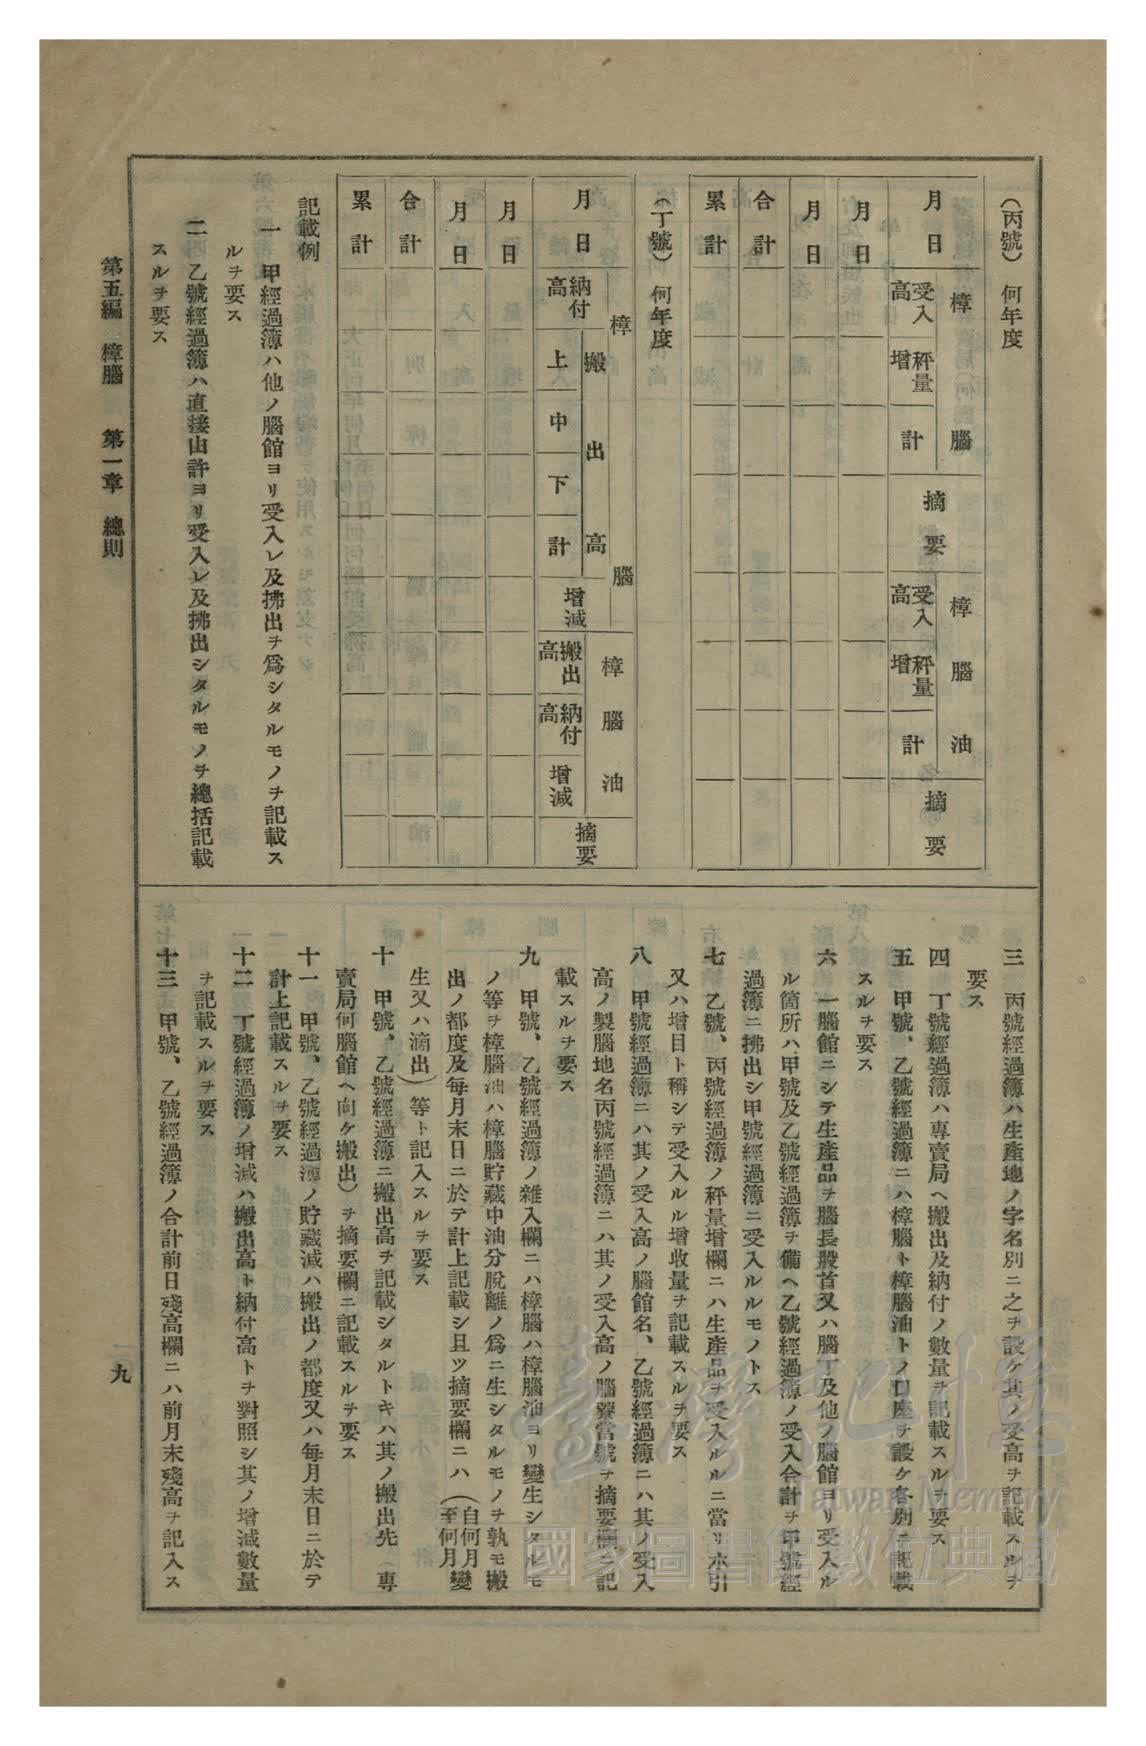 (丙號) 何年度
月 日
樟 腦
受入高
秤量增
計
摘 要
樟 腦 油
受入高
秤量增
計
摘 要
月 日
月 日
合 計
累 計
(丁號) 何年度
月 日
樟 腦
納付高
搬 出 高
上
中
下
計
增減
樟 腦 油
搬出高
納付高
增減
摘要
月 日
月 日
合 計
累 計
記載例
一 甲經過簿ハ他ノ腦館ヨリ受入レ及拂出ヲ爲シタルモノヲ記載ス
ルヲ要ス
二 乙號經過簿ハ直接山許ヨリ受入レ及拂出シタルモノヲ總括記載
スルヲ要ス
三 丙號經過簿ハ生產地ノ字名別ニ之ヲ設ケ其ノ受高ヲ記載スルヲ
要ス
四 丁號經過簿ハ專賣局ヘ搬出及納付ノ數量ヲ記載スルヲ要ス
五 甲號、乙號經過簿ニハ樟腦ト樟腦油トノ口座ヲ設ケ各別ニ記載
スルヲ要ス
六 一腦館ニシテ生產品ヲ腦長股首又ハ腦丁及他ノ腦館ヨリ受入ル
ル箇所ハ甲號及乙號經過簿ヲ備ヘ乙號經過簿ノ受入合計ヲ甲號經
過簿ニ拂出シ甲號經過簿ニ受入ルルモノトス
七 乙號、丙號經過簿ノ秤量增欄ニハ生產品ヲ受入ルルニ當リ水引
又ハ增目ト稱シテ受入ルル增收量ヲ記載スルヲ要ス
八 甲號經過簿ニハ其ノ受入高ノ腦館名、乙號經過簿ニハ其ノ受入
高ノ製腦地名丙號經過簿ニハ其ノ受入高ノ腦藔當號ヲ摘要欄ニ記
載スルヲ要ス
九 甲號、乙號經過簿ノ雜入欄ニハ樟腦ハ樟腦油ヨリ變生シタルモ
ノ等ヲ樟腦油ハ樟腦貯藏中油分脫離ノ爲ニ生シタルモノヲ孰モ搬
出ノ都度及每月末日ニ於テ計上記載シ且ツ摘要欄ニハ(自何月至何月變
生又ハ滴出)等ト記入スルヲ要ス
十 甲號、乙號經過簿ニ搬出高ヲ記載シタルトキハ其ノ搬出先(專
賣局何腦館ヘ向ケ搬出)ヲ摘要欄ニ記載スルヲ要ス
十一 甲號、乙號經過簿ノ貯藏減ハ搬出ノ都度又ハ每月末日ニ於テ
計上記載スルヲ要ス
十二 丁號經過簿ノ增減ハ搬出高ト納付高トヲ對照シ其ノ增減數量
ヲ記載スルヲ要ス
十三 甲號、乙號經過簿ノ合計前日殘高欄ニハ前月末殘高ヲ記入ス
第五編 樟腦 第一章 總則
一九
臺灣記憶
Taiwan Memory
國家圖書館數位典藏